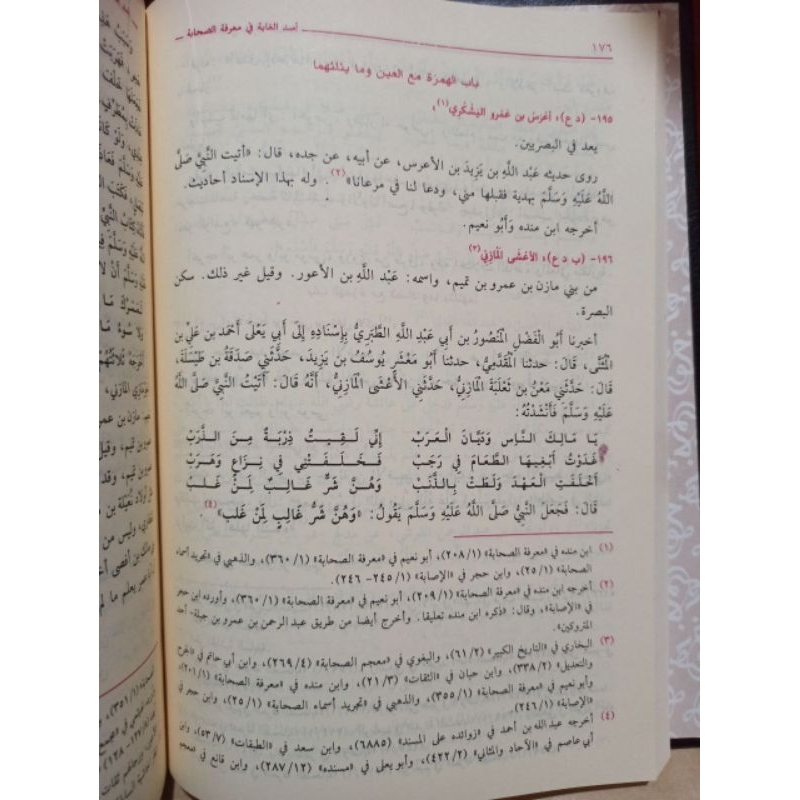 ١٧٦
أسد الغابة في معرفة الصحابة
باب الهمزة مع العين وما يثلثهما
١٩٥- (د ع)، أعرس بن عمرو اليَشْكُري(١)،
يعد في البصريين.
روى حديثه عَبْد اللَّهِ بن يَزِيدَ بن الأعرس، عن أبيه، عن جده، قال: «أتيت النَّبِيَّ صَلَّى
اللَّهُ عَلَيْهِ وَسَلَّمَ بهدية فقبلها مني، ودعا لنا في مرعانا»(٢). وله بهذا الإسناد أحاديث.
أخرجه ابن منده وَأَبُو نعيم.
١٩٦- (ب د ع)، الأعْشى المَازِني(٣)
من بني مازن بن عمرو بن تميم، واسمه: عَبْد اللَّهِ بن الأعور. وقيل غير ذلك. سكن
البصرة.
أخبرنا أَبُو الْفَضْلِ الْمَنْصُورُ بن أَبِي عَبْدِ اللَّهِ الطَّبَرِيُّ بِإِسْنَادِهِ إِلَى أَبِي يَعْلَى أَحْمَد بن عَلِيِّ بن
الْمُثَنَّى، قَالَ: حدثنا الْمُقَدَّمِيُّ، حدثنا أَبُو مَعْشَرٍ يُوسُفُ بن يَزِيدَ، حَدَّثَنِي صَدَقَةُ بن طَيْسَلَةَ،
قَالَ: حَدَّثَنِي مَعْنُ بن ثَعْلَبَةَ الْمَازِنِيُّ، حَدَّثَنِي الأَعْشَى الْمَازِنِيُّ، أَنَّهُ قَالَ: أَتَيْتُ النَّبِيَّ صَلَّى اللَّهُ
عَلَيْهِ وَسَلَّمَ فَأَنْشَدْتُهُ:
يَا مَالِكَ النَّاسِ وَدَيَّانَ الْعَرَبْ إِنِّي لَقِيتُ ذِرْبَةً مِنَ الذَّرَبْ
غَدَوْتُ أَبْغِيهَا الطَّعَامَ فِي رَجَبْ فَخَلَفَتْنِي فِي نِزَاعٍ وَهَرَبْ
أَخْلَفَتِ الْعَهْدَ وَلَطَّتْ بِالذَّنَبْ وَهُنَّ شَرُّ غَالِبٍ لِمَنْ غَلَبْ
قَالَ: فَجَعَلَ النَّبِيُّ صَلَّى اللَّهُ عَلَيْهِ وَسَلَّمَ يَقُولُ: «وَهُنَّ شَرُّ غَالِبٍ لِمَنْ غَلَب»(٤)
(١) ابن منده في «معرفة الصحابة» (٢٠٨/١)، أبو نعيم في «معرفة الصحابة» (٣٦٠/١)، والذهبي في «تجريد أسماء
الصحابة» (٢٥/١)، وابن حجر في «الإصابة» (٢٤٥/١- ٢٤٦).
(٢) أخرجه ابن منده في «معرفة الصحابة» (٢٠٩/١)، أبو نعيم في «معرفة الصحابة» (٣٦٠/١)، وأورده ابن حجر
في «الإصابة»، وقال: «ذكره ابن منده تعليقا. وأخرج أيضا من طريق عبد الرحمن بن عمرو بن جبلة- أحد
المتروكين».
(٣) البخاري في «التاريخ الكبير» (٦١/٢)، والبغوي في «معجم الصحابة» (٢٦٩/٤)، وابن أبي حاتم في «الجرح
والتعديل» (٣٣٨/٢)، وابن حبان في «الثقات» (٢١/٣)، وابن منده في «معرفة الصحابة» (٢٠١/١)،
وأبو نعيم في «معرفة الصحابة» (٣٥٥/١)، والذهبي في «تجريد أسماء الصحابة» (٢٥/١)، وابن حجر في
«الإصابة» (٢٤٦/١).
(٤) أخرجه عبد الله بن أحمد في «زوائده على المسند» (٦٨٨٥)، وابن سعد في «الطبقات» (٥٣/٧)، وابن
أبي عاصم في «الآحاد والمثاني» (٤٢٢/٢)، وأبو يعلى في «مسنده» (٢٨٧/١٢)، وابن قانع في «معجم